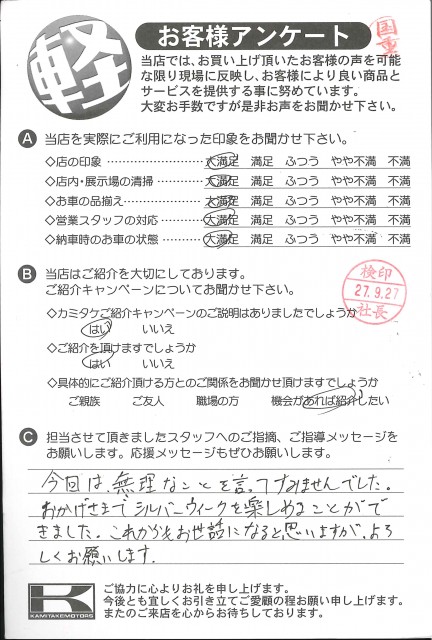 軽
お客様アンケート
当店では、お買い上げ頂いたお客様の声を可能
な限り現場に反映し、お客様により良い商品と
サービスを提供する事に努めています。
大変お手数ですが是非お声をお聞かせ下さい。
A 当店を実際にご利用になった印象をお聞かせ下さい。
◇店の印象 大満足 満足 ふつう やや不満 不満
◇店内・展示場の清掃 大満足 満足 ふつう やや不満 不満
◇お車の品揃え 大満足 満足 ふつう やや不満 不満
◇営業スタッフの対応 大満足 満足 ふつう やや不満 不満
◇納車時のお車の状態 大満足 満足 ふつう やや不満 不満
B 当店はご紹介を大切にしております。
ご紹介キャンペーンについてお聞かせ下さい。
検印
27.9.27
社長
◇カミタケご紹介キャンペーンのご説明はありましたでしょうか
はい いいえ
◇ご紹介を頂けますでしょうか
はい いいえ
◇具体的にご紹介頂ける方とのご関係をお聞かせ頂けますでしょうか
ご親族 ご友人 職場の方 機会があれば紹介したい
C 担当させて頂きましたスタッフへのご指摘、ご指導メッセージを
お願いします。応援メッセージもぜひお願いします。
今回は、無理なことを言ってすみませんでした。
おかげさまで シルバーウィークを楽しめることがで
きました。これからもお世話になると思いますが、よろ
しくお願いします。
KAMITAKEMOTORS
ご協力に心よりお礼を申し上げます。
今後とも宜しくお引き立てご愛顧の程お願い申し上げます。
またのご来店を心からお待ちしております。